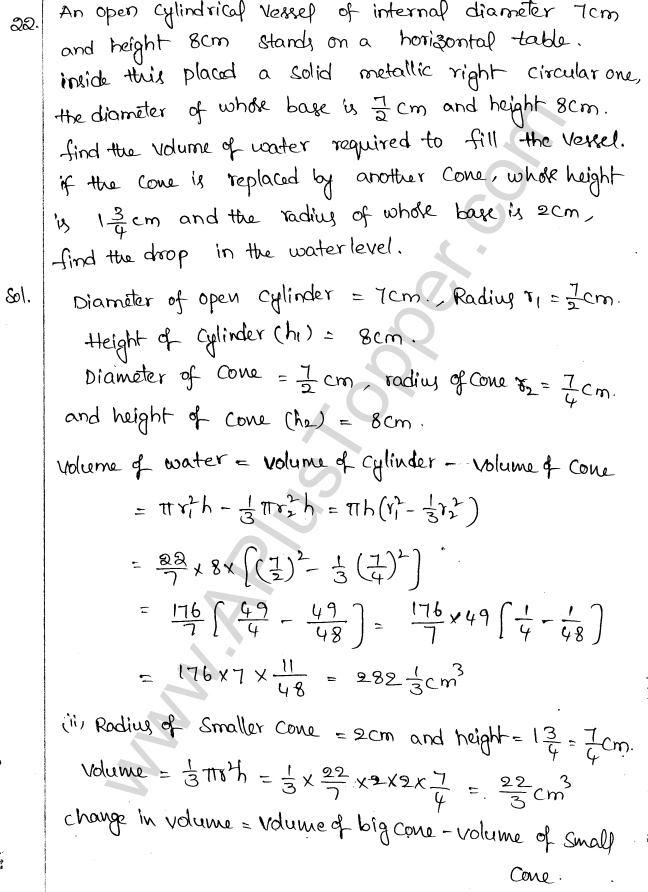 22. An open cylindrical vessel of internal diameter 7cm
and height 8cm stands on a horizontal table.
inside this placed a solid metallic right circular one,
the diameter of whose base is 7/2 cm and height 8cm.
find the volume of water required to fill the vessel.
if the cone is replaced by another cone, whose height
is 1 3/4 cm and the radius of whose base is 2cm,
find the drop in the water level.
Sol. Diameter of open cylinder = 7cm., Radius r₁ = 7/2 cm.
Height of cylinder (h₁) = 8cm.
Diameter of cone = 7/2 cm, radius of cone r₂ = 7/4 cm.
and height of cone (h₂) = 8cm.
Volume of water = volume of cylinder - volume of cone
= πr₁²h - 1/3 πr₂²h = πh(r₁² - 1/3 r₂²)
= 22/7 × 8 × [(7/2)² - 1/3 (7/4)²]
= 176/7 [49/4 - 49/48] = 176/7 × 49 [1/4 - 1/48]
= 176 × 7 × 11/48 = 282 1/3 cm³
(ii) Radius of smaller cone = 2cm and height = 1 3/4 = 7/4 cm.
Volume = 1/3 πr²h = 1/3 × 22/7 × 2 × 2 × 7/4 = 22/3 cm³
change in volume = volume of big cone - volume of small
cone.
www.APlusTopper.com